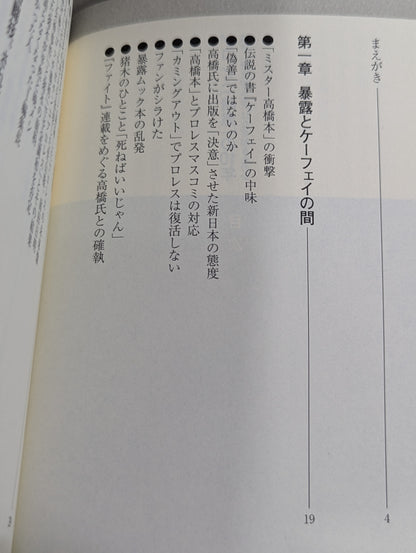 まえがき 4
第一章 暴露とケーフェイの間 19
●「ミスター高橋本」の衝撃
●伝説の書『ケーフェイ』の中味
●「偽善」ではないのか
●高橋氏に出版を「決意」させた新日本の態度
●「高橋本」とプロレスマスコミの対応
●「カミングアウト」でプロレスは復活しない
●ファンがシラけた
●暴露ムック本の乱発
●猪木のひとこと「死ねばいいじゃん」
●『ファイト』連載をめぐる高橋氏との確執